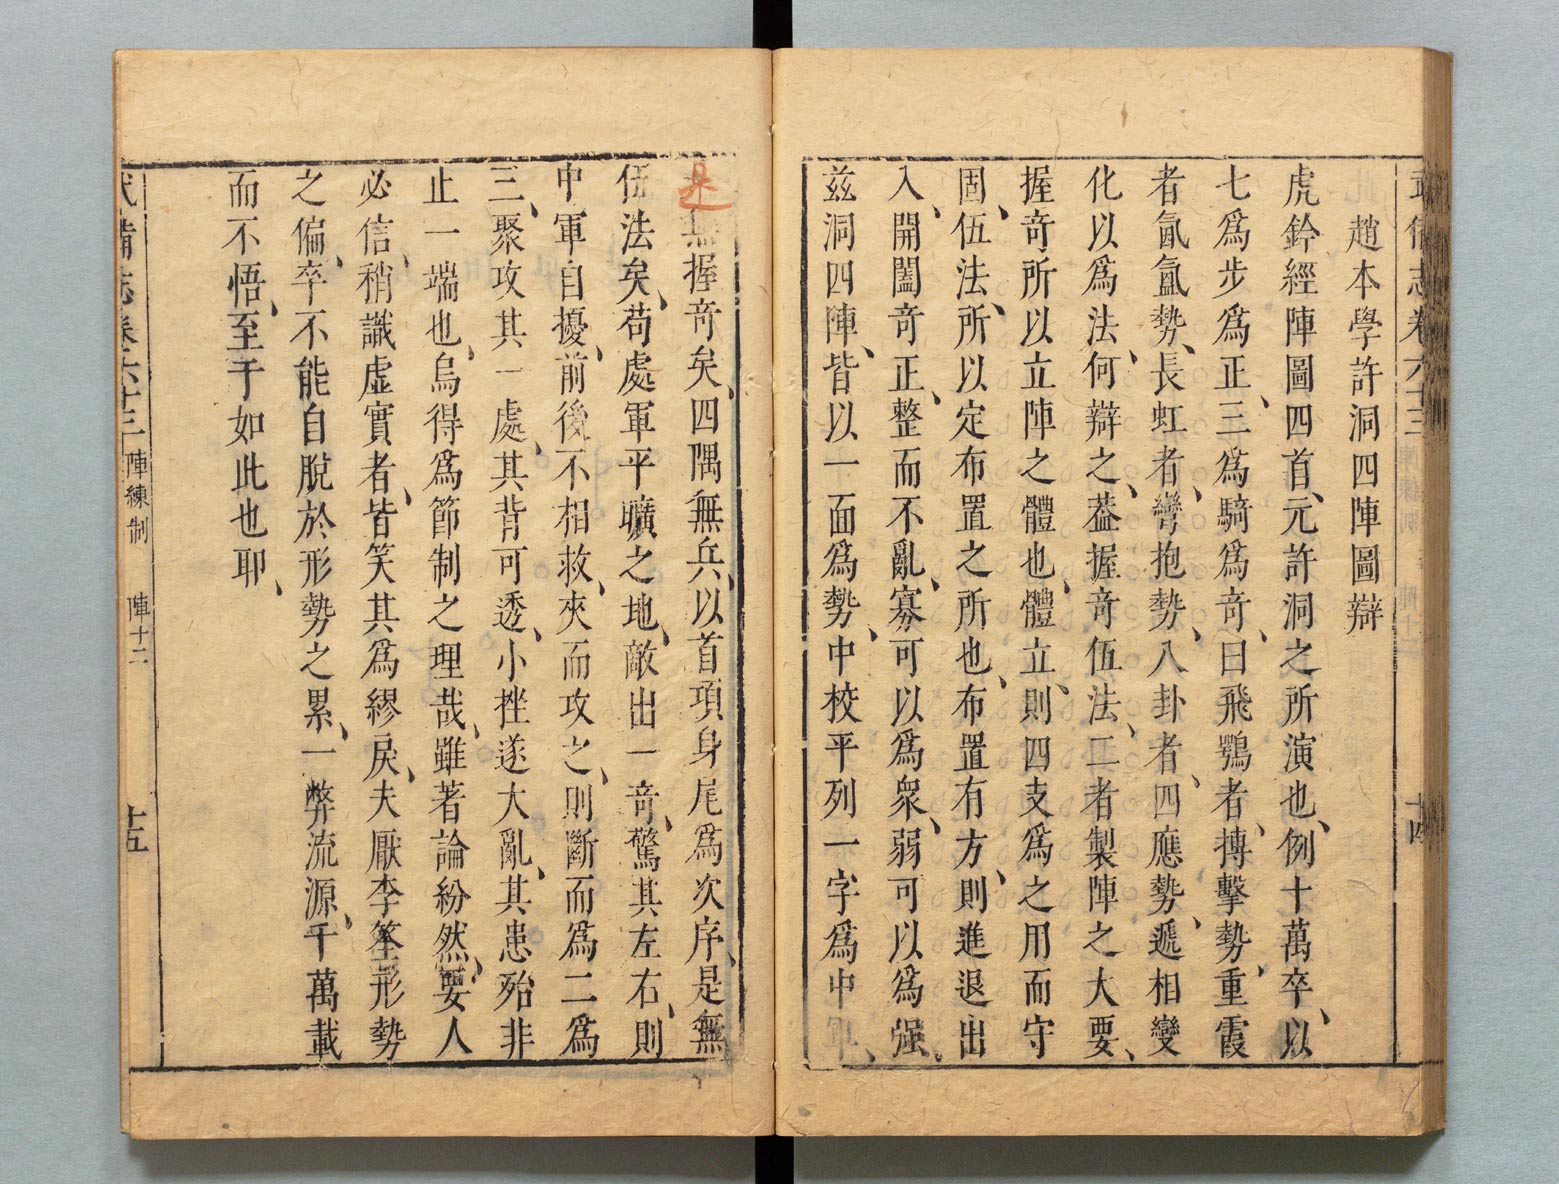 武備志卷六十三
趙本學許洞四陣圖辯
虎鈐經陣圖四首、元許洞之所演也、例十萬卒、以
七爲步爲正、三爲騎爲奇、曰飛鶚者、摶擊勢、重霞
者氤氳勢、長虹者、彎抱勢、八卦者、四應勢、遞相變
化以爲法、何辯之、葢握奇伍法、二者製陣之大要、
握奇所以立陣之體也、體立、則四支爲之用而守
固、伍法、所以定布置之所也、布置有方、則進退出
入、開闔奇正、整而不亂、寡可以爲衆、弱可以爲强、
茲洞四陣、皆以一面爲勢、中校平列一字爲中軍、
是無握奇矣、四隅無兵、以首項身尾爲次序、是無
伍法矣、苟處軍平曠之地、敵出一奇、驚其左右、則
中軍自擾、前後不相救、夾而攻之、則斷而爲二爲
三、聚攻其一處、其背可透、小挫遂大亂、其患殆非
止一端也、烏得爲節制之理哉、雖著論紛然、要人
必信、稍識虛實者、皆笑其爲繆戾、夫厭李筌形勢
之偏、卒不能自脫於形勢之累、一弊流源、千萬載
而不悟、至于如此也耶、
武備志卷六十三 陣練制 陣十二 十五